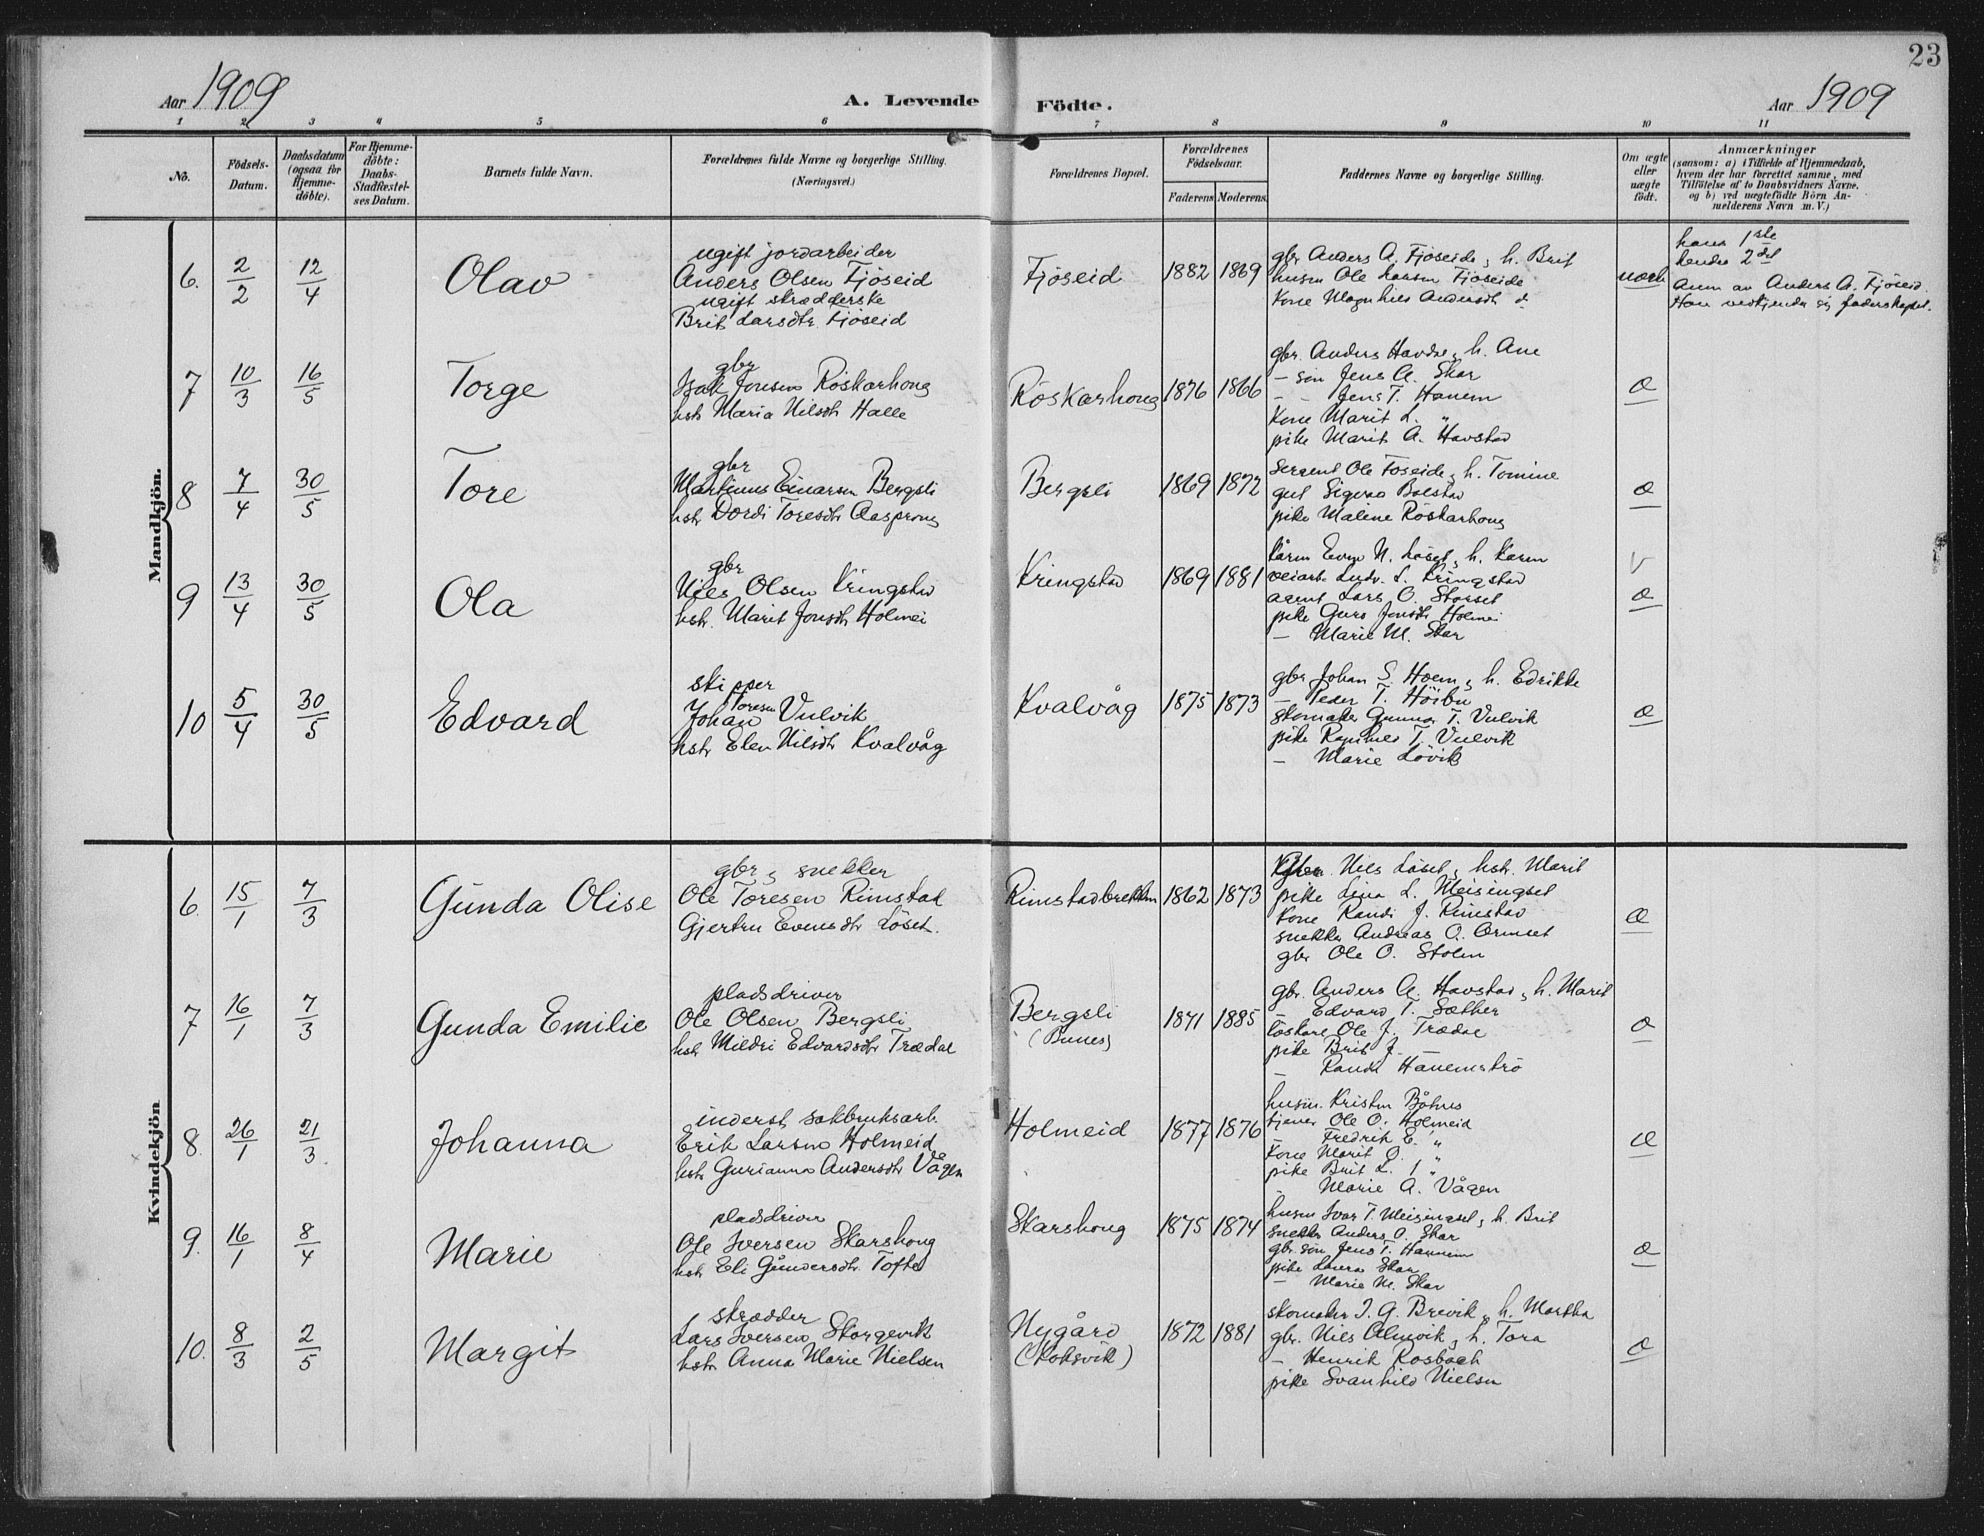 23
Aar 1909
A. Levende Födte.
Aar 1909
1 2 3 4 5 6 7 8 9 10 11
No.
Födsels-
Datum.
Daabsdatum
(ogsaa for
Hjemme-
döbte).
For Hjemme-
döbte:
Daabs-
Stadfæstel-
ses Datum.
Barnets fulde Navn.
Forældrenes fulde Navne og borgerlige Stilling.
(Næringsvei.)
Forældrenes Bopæl.
Forældrenes
Födselsaar.
Faderens Moderens
Faddernes Navne og borgerlige Stilling.
Om ægte
eller
uægte
födt.
Anmærkninger
(saasom: a) i Tilfælde af Hjemmedaab,
hvem der har forrettet samme, med
Tilföielse af to Daabsvidners Navne,
og b) ved uægtefödte Börn An-
melderens Navn m. V.)
Mandkjön.
6. 2/2 12/4 Olav
ugift jordarbeider
Anders Olsen Fjöseid
ugift skrædderske
Brit Larsdtr. Fjöseid
Fjöseid 1882 1869
gbr Anders A. Fjöseide, h. Brit
husm Ole Larsen Fjöseide
Kone
uægte
hans 1ste
hendes 2det
Anm av Anders A. Fjöseid.
Han vedkjender sig faderskapet.
7 10/3 16/5 Torge
gbr
Isak Jonsen Röskarhoug
hstr Maria Nilsdtr Halle
Röskarhoug 1876 1866
gbr. Anders Havdal, h. Ane
- sön Jens A. Skar
- - Jens T. Hanem
Kone Marit L. "
pike Marit A. Havstad
æ
8 7/4 30/5 Tore
gbr
Martinus Einarsen Bergsli
hstr Dordi Toresdtr Aasproug
Bergsli 1869 1872
Sergent Ole Foseide, h. Tomine
gut Sigvald Bolstad
pike Malene Röskarhoug
æ
9 13/4 30/5 Ola
gbr
Niels Olsen Kringstad
hstr. Marit Jonsdtr Holmei
Kringstad 1869 1881
kårm Even N. Löset, h. Karen
veiarb. Ludv. L. Kringstad
agent Lars O. Storset
pike Guro Jonsdtr Holmei
- Marie M. Skar
v
æ
10 5/4 30/5 Edvard
skipper
Johan Toresen Vulvik
hstr Elen Nilsdtr Kvalvåg
Kvalvåg 1875 1873
gbr Johan S. Hoem, h. Edrikke
- Peder T. Höibu
skomaker Gunnar T. Vulvik
pike Ragnhild T. Vulvik
- Marie Lövik
æ
Kvindekjön
6. 15/1 7/3 Gunda Olise
gbr, snekker
Ole Toresen Rimstad
Gjertru Evensdtr Löset.
Rimstadbrekken 1862 1873
Nils Löset, hstr. Marit
pike Lina L. Meisingset
Kone Randi J. Rimstad
snekker Andreas O. Ormset
gbr Ole O. Stolen
æ
7 16/1 7/3 Gunda Emilie
pladsdriver
Ole Olsen Bergsli
hstr Mildri Edvardsdtr Trædal
Bergsli
(Bunes) 1871 1885
gbr. Anders A. Havstad, h. Marit
- Edvard T. Sæther
löskarl Ole J. Trædal
pike Brit J. -
- Randi Hanemströ
æ
8. 26/1 21/3 Johanna
inderst sakbruksarb.
Erik Larsen Holmeid
hstr Gurianna Andersdtr Vågen
Holmeid 1877 1876
husm. Kristen Båtnes
tjener Ole O. Holmeid
- Fredrik E. "
Kone Marit O. "
pike Brit L. "
- Marie A. Vågen
æ
9. 16/1 8/4 Marie
pladsdriver
Ole Iversen Skarshoug
hstr Eli Gundersdtr. Tofte
Skarshoug 1875 1874
husm Ivar T. Meisingset, h. Brit
snekker Anders O. Skar
gbr. sön Jens T. Hannem
pike Laura Skar
- Marie M. Skar
æ
10. 8/3 2/5 Margit
skrædder
Lars Iversen Skorgevik
hstr Anna Marie Nielsen
Nygård
(Koksvik) 1872 1881
skomaker I. G. Brevik, h. Martha
gbr. Nils Almvik, h. Tora
- Henrik Rosbach
pike Svanhild Nielsen
æ